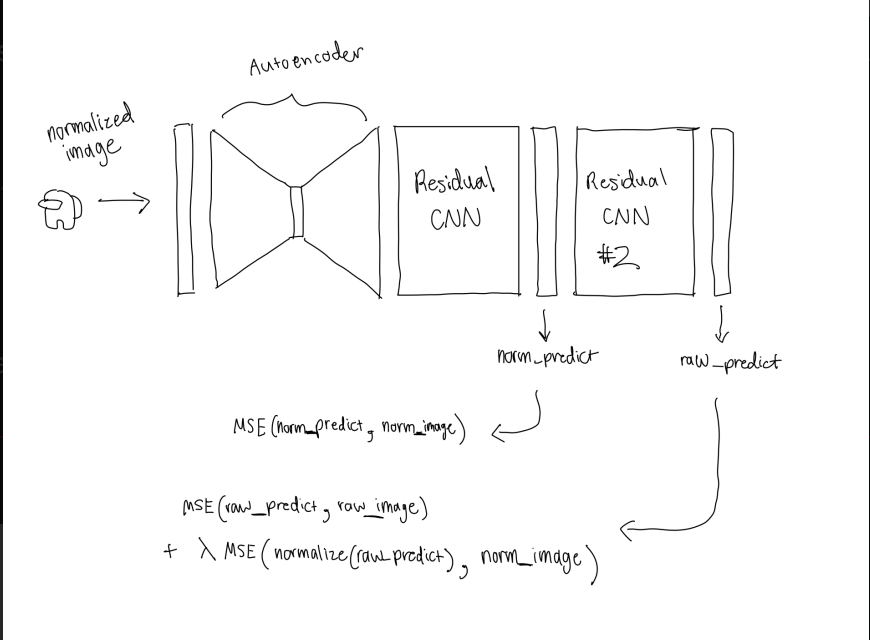 Autoencoder
normalized
image
Residual
CNN
Residual
CNN
#2
norm_predict
raw_predict
MSE(norm_predict, norm_image)
MSE(raw_predict, raw_image)
+ λ MSE(normalize(raw_predict), norm_image)